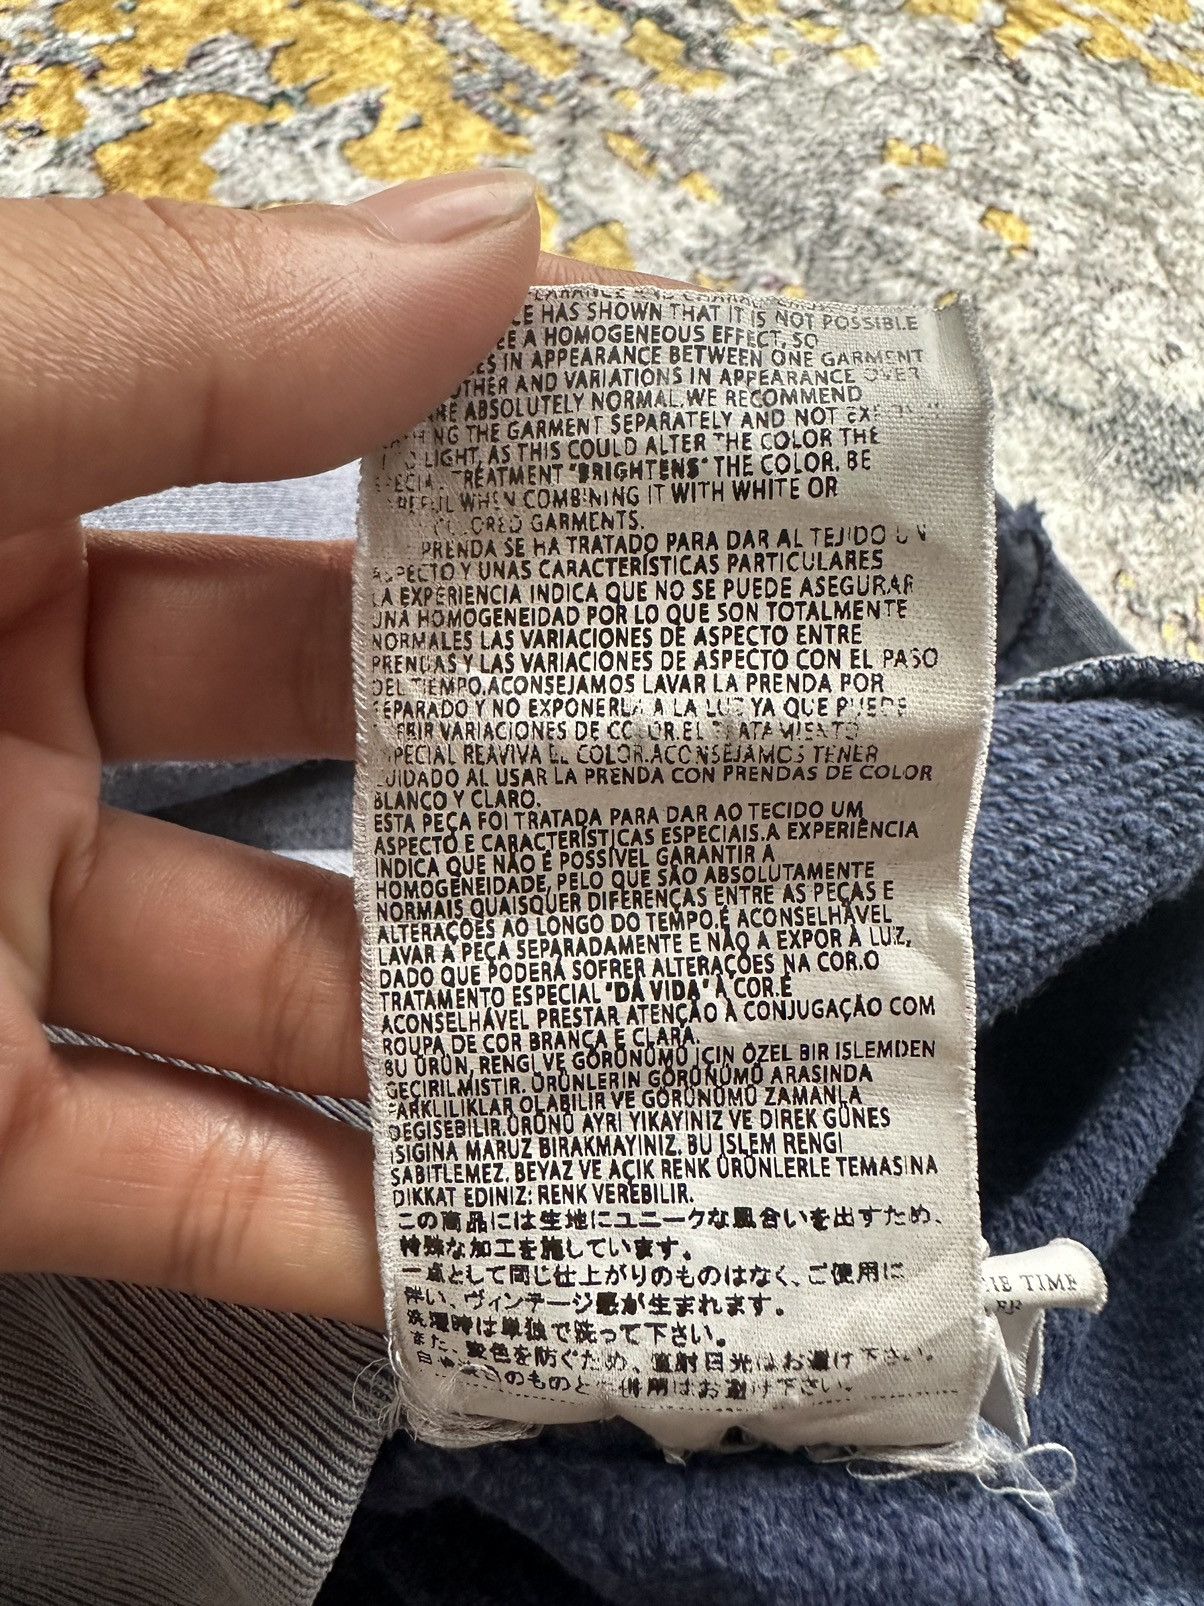 HAS SHOWN THAT IT IS NOT POSSIBLE
A HOMOGENEOUS EFFECT, SO
IN APPEARANCE BETWEEN ONE GARMENT
AND VARIATIONS IN APPEARANCE OVER
ABSOLUTELY NORMAL.WE RECOMMEND
THE GARMENT SEPARATELY AND NOT
LIGHT, AS THIS COULD ALTER THE COLOR THE
TREATMENT "BRIGHTENS" THE COLOR. BE
WHEN COMBINING IT WITH WHITE OR
GARMENTS.
PRENDA SE HA TRATADO PARA DAR AL TEJIDO UN
ASPECTO Y UNAS CARACTERÍSTICAS PARTICULARES
LA EXPERIENCIA INDICA QUE NO SE PUEDE ASEGURAR
UNA HOMOGENEIDAD POR LO QUE SON TOTALMENTE
NORMALES LAS VARIACIONES DE ASPECTO ENTRE
PRENDAS Y LAS VARIACIONES DE ASPECTO CON EL PASO
DEL TIEMPO.ACONSEJAMOS LAVAR LA PRENDA POR
SEPARADO Y NO EXPONERLA A LA LUZ YA QUE PUEDE
VARIACIONES DE COLOR.EL TRATAMIENTO
REAVIVA EL COLOR.ACONSEJAMOS TENER
CUIDADO AL USAR LA PRENDA CON PRENDAS DE COLOR
BLANCO Y CLARO.
ESTA PEÇA FOI TRATADA PARA DAR AO TECIDO UM
ASPECTO E CARACTERÍSTICAS ESPECIAIS.A EXPERIÊNCIA
INDICA QUE NÃO É POSSÍVEL GARANTIR A
HOMOGENEIDADE, PELO QUE SÃO ABSOLUTAMENTE
NORMAIS QUAISQUER DIFERENÇAS ENTRE AS PEÇAS E
ALTERAÇÕES AO LONGO DO TEMPO.É ACONSELHÁVEL
LAVAR A PEÇA SEPARADAMENTE E NÃO A EXPOR À LUZ,
DADO QUE PODERÁ SOFRER ALTERAÇÕES NA COR.O
TRATAMENTO ESPECIAL "DÁ VIDA" À COR.É
ACONSELHÁVEL PRESTAR ATENÇÃO À CONJUGAÇÃO COM
ROUPA DE COR BRANÇA E CLARA.
BU ÜRÜN, RENGI VE GÖRÜNÜMÜ IÇIN ÖZEL BIR ISLEMDEN
GEÇIRILMISTIR. ÜRÜNLERIN GÖRÜNÜMÜ ARASINDA
FARKLILIKLAR OLABILIR VE GÖRÜNÜMÜ ZAMANLA
DEGISEBILIR.ÜRÜNÜ AYRI YIKAYINIZ VE DIREK GÜNES
ISIGINA MARUZ BIRAKMAYINIZ. BU ISLEM RENGI
SABITLEMEZ. BEYAZ VE AÇIK RENK ÜRÜNLERLE TEMASINA
DIKKAT EDINIZ: RENK VEREBILIR.
この商品には生地にユニークな風合いを出すため、
特殊な加工を施しています。
一点として同じ仕上がりのものはなく、ご使用に
伴い、ヴィンテージ感が生まれます。
洗濯時は単独で洗って下さい。
また、変色を防ぐため、直射日光はお避け下さい。
のものと 併用はお避け下さい。
TIME